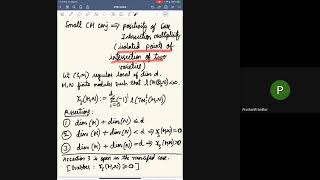 Small CM conj ⟹ positivity of Serre
Intersection multiplicity
(isolated points of
intersection of two
varieties)
Let (S,m) regular local of dim d.
M,N finite modules such that l(M⊗N)<∞.
χ(M,N) := Σ (-1)^i l(Tor_i^S(M,N))
Assertions:
① dim(M) + dim(N) ≤ d
② dim(M) + dim(N) < d ⟹ χ(M,N)=0
③ dim(M) + dim(N) = d ⟹ χ(M,N)>0
Assertion 3 is open in the ramified case.
[Gabber: χ(M,N) ≥ 0]
P